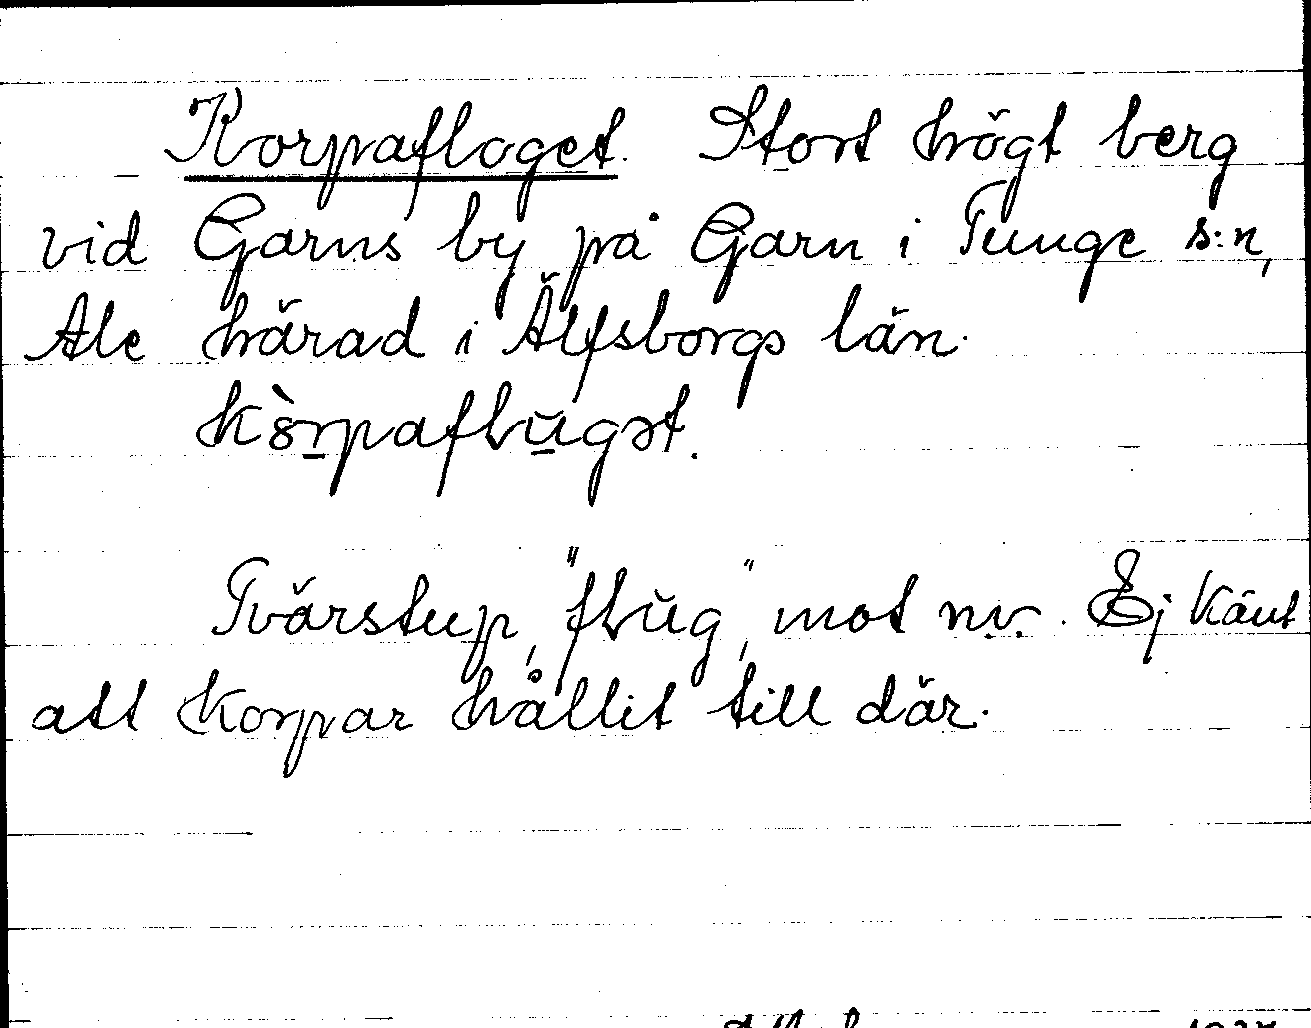 Korpafloget. Stort högt berg
vid Garns by på Garn i Tunge s:n,
Ale härad i Älfsborgs län.
kòrpaflŭgət.
Tvärstup, "flŭg", mot nv. Ej känt
att korpar hållit till där.